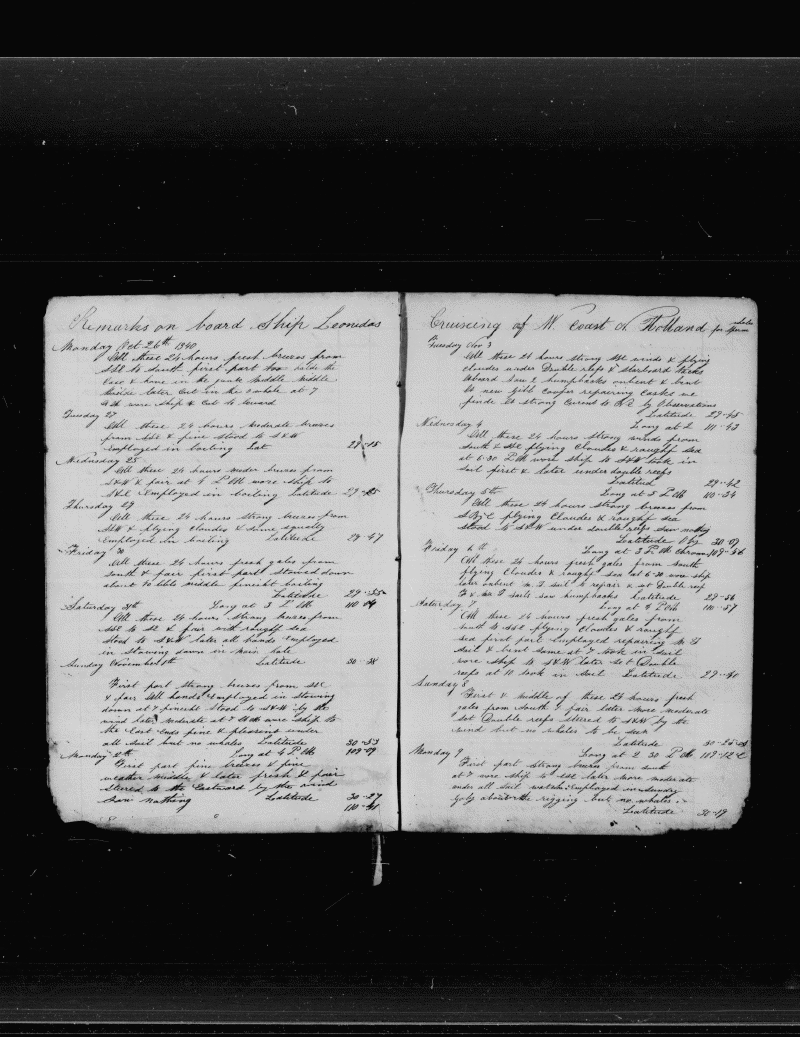 Remarks on board Ship Leonidas
Monday Oct 26th 1840
All these 24 hours fresh breezes from
SSE to South first part
Case & hove in the middle middle
later Cut in the whale at 7
AM wore Ship & Cut to
Tuesday 27
All these 24 hours moderate breezes
from & fine stood to S&W
Employed in boiling Lat 29-15
Wednesday 28
All these 24 hours moder breezes from
S&W & fair at 4 PM wore ship to
S&E Employed in boiling Latitude 29-25
Thursday 29
All these 24 hours strong breezes from
& flying Cloudes & some squally
Employed in boiling Latitude 29-47
Friday 30
All these 24 hours fresh gales from
South & fair first part stowed down
about 70 bbls middle finished boiling
Latitude 29-55
Saturday 31th Long at 3 PM 110-04
All these 24 hours strong breezes from
SSE to SE & fair with roughf sea
stood to S&W later all hands Employed
in stowing down in main hole
Sunday November 1th Latitude 30-28
First part strong breezes from SSE
& fair All hands Employed in stowing
down at 7 finished stood to S&W by the
wind later moderate at 7 AM wore ship to
the East Ends fine & pleasent under
all sail but no whales Latitude 30-53
Monday 2th Long at 4 PM 109-09
First part fine breezes & fine
weather middle & later fresh & fair
steered to the Eastward by the wind
saw nothing Latitude 30-27
110-41
Cruiseing of W. Coast of N Holland for Sperm whales
Tuesday Nov 3
All these 24 hours strong SSE winds & flying
cloudes under Double reefs & starboard tacks
aboard saw 2 humpbacks unbent & bent
a new Gibb Cooper repairing Casks we
finde a strong Curent to by Observations
Latitude 29-45
Wednesday 4 Long at 2 111-43
All these 24 hours strong winds from
South & SSE flying Cloudes & roughf sea
at 6-30 PM wore ship to S&W took in
sail first & later under double reefs
Latitud 29-42
Thursday 5th Long at 3 PM 110-34
All these 24 hours strong breezes from
S by E flying Cloudes & roughf sea
stood to S&W under double reefs saw nothing
Latitude Obs 30-09
Friday 6th Long at 3 PM Chronom 109-46
All these 24 hours fresh gales from South
flying Cloudes & roughf sea at 6-30 wore ship
later unbent M. T sail & repair & set Double reef
F & M T sails saw humpbacks Latitude 29-56
Saturday 7 Long at 4 PM 110-57
All these 24 hours fresh gales from
South to SSE flying Cloudes & roughf
sea first part Employed repairing M T
sail & bent same at 7 took in sail
wore ship to S&W later set Double
reefs at 10 took in sail Latitude 29-40
Sunday 8
First & middle of these 24 hours fresh
gales from South & fair later more moderate
set Double reefs steered to S&W by the
wind but no whales to be seen
Latitude 30-25
Monday 9 Long at 2 30 PM 109-12
First part strong breezes from south
at 7 wore ship to SSE later more moderate
under all sail watch Employed in sundry
jobs about the rigging but no whales
Latitude 30-19